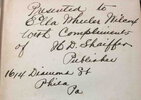 Presented to
Ella Wheeler Wilcox
with Compliments
of H. D. Shaiffer
Publisher
1614 Diamond St
Phila
Pa